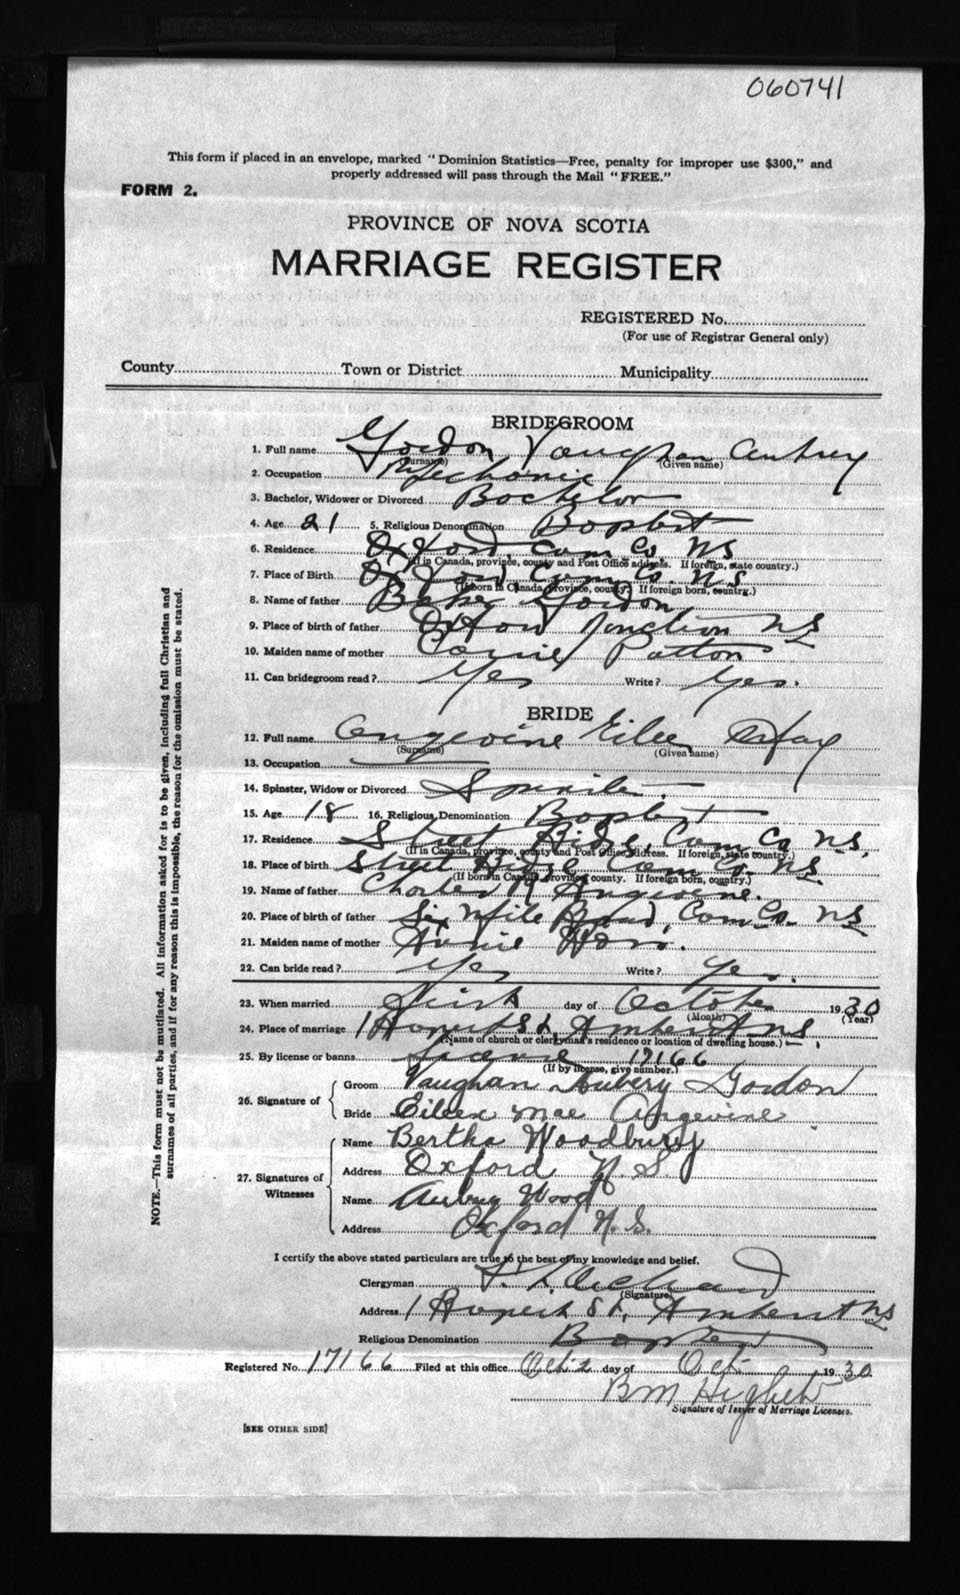 060741
This form if placed in an envelope, marked "Dominion Statistics—Free, penalty for improper use $300," and
properly addressed will pass through the Mail "FREE."
FORM 2.
PROVINCE OF NOVA SCOTIA
MARRIAGE REGISTER
REGISTERED No.
(For use of Registrar General only)
County Town or District Municipality
BRIDEGROOM
1. Full name Gordon Vaughan Aubrey
(Surname) (Given name)
2. Occupation Mechanic
3. Bachelor, Widower or Divorced Bachelor
4. Age 21 5. Religious Denomination Baptist
6. Residence Oxford, Cum Co NS
(If in Canada, province, county and Post Office address. If foreign, state country.)
7. Place of Birth Oxford Cum Co. NS
(If born in Canada, province, county. If foreign born, country.)
8. Name of father Gordon
9. Place of birth of father Oxford Junction NS
10. Maiden name of mother Carrie Patton
11. Can bridegroom read? Yes Write? Yes.
BRIDE
12. Full name Angevine Eileen May
(Surname) (Given name)
13. Occupation
14. Spinster, Widow or Divorced Spinster
15. Age 18 16. Religious Denomination Baptist
17. Residence Street Ridge, Cum Co NS.
(If in Canada, province, county and Post Office address. If foreign, state country.)
18. Place of birth Street Ridge Cum Co. NS
(If born in Canada, province, county. If foreign born, country.)
19. Name of father Charles Angevine.
20. Place of birth of father Six Mile Road, Cum Co. NS
21. Maiden name of mother Annie
22. Can bride read? Yes Write? Yes.
23. When married First day of October 1930
(Month) (Year)
24. Place of marriage 1 Rupert St. Amherst NS
(Name of church or clergyman's residence or location of dwelling house.)
25. By license or banns license 17166
(If by license, give number.)
26. Signature of
Groom Vaughan Aubery Gordon
Bride Eileen Mae Angevine
27. Signatures of Witnesses
Name Bertha Woodbury
Address Oxford N.S.
Name Aubrey Wood
Address Oxford N.S.
I certify the above stated particulars are true to the best of my knowledge and belief.
Clergyman
(Signature)
Address 1 Rupert St. Amherst NS
Religious Denomination Baptist
Registered No. 17166 Filed at this office Oct 2 day of Oct 1930
B M
Signature of Issuer of Marriage Licenses.
[SEE OTHER SIDE]
NOTE.—This form must not be mutilated. All information asked for is to be given, including full Christian and
surnames of all parties, and if for any reason this is impossible, the reason for the omission must be stated.